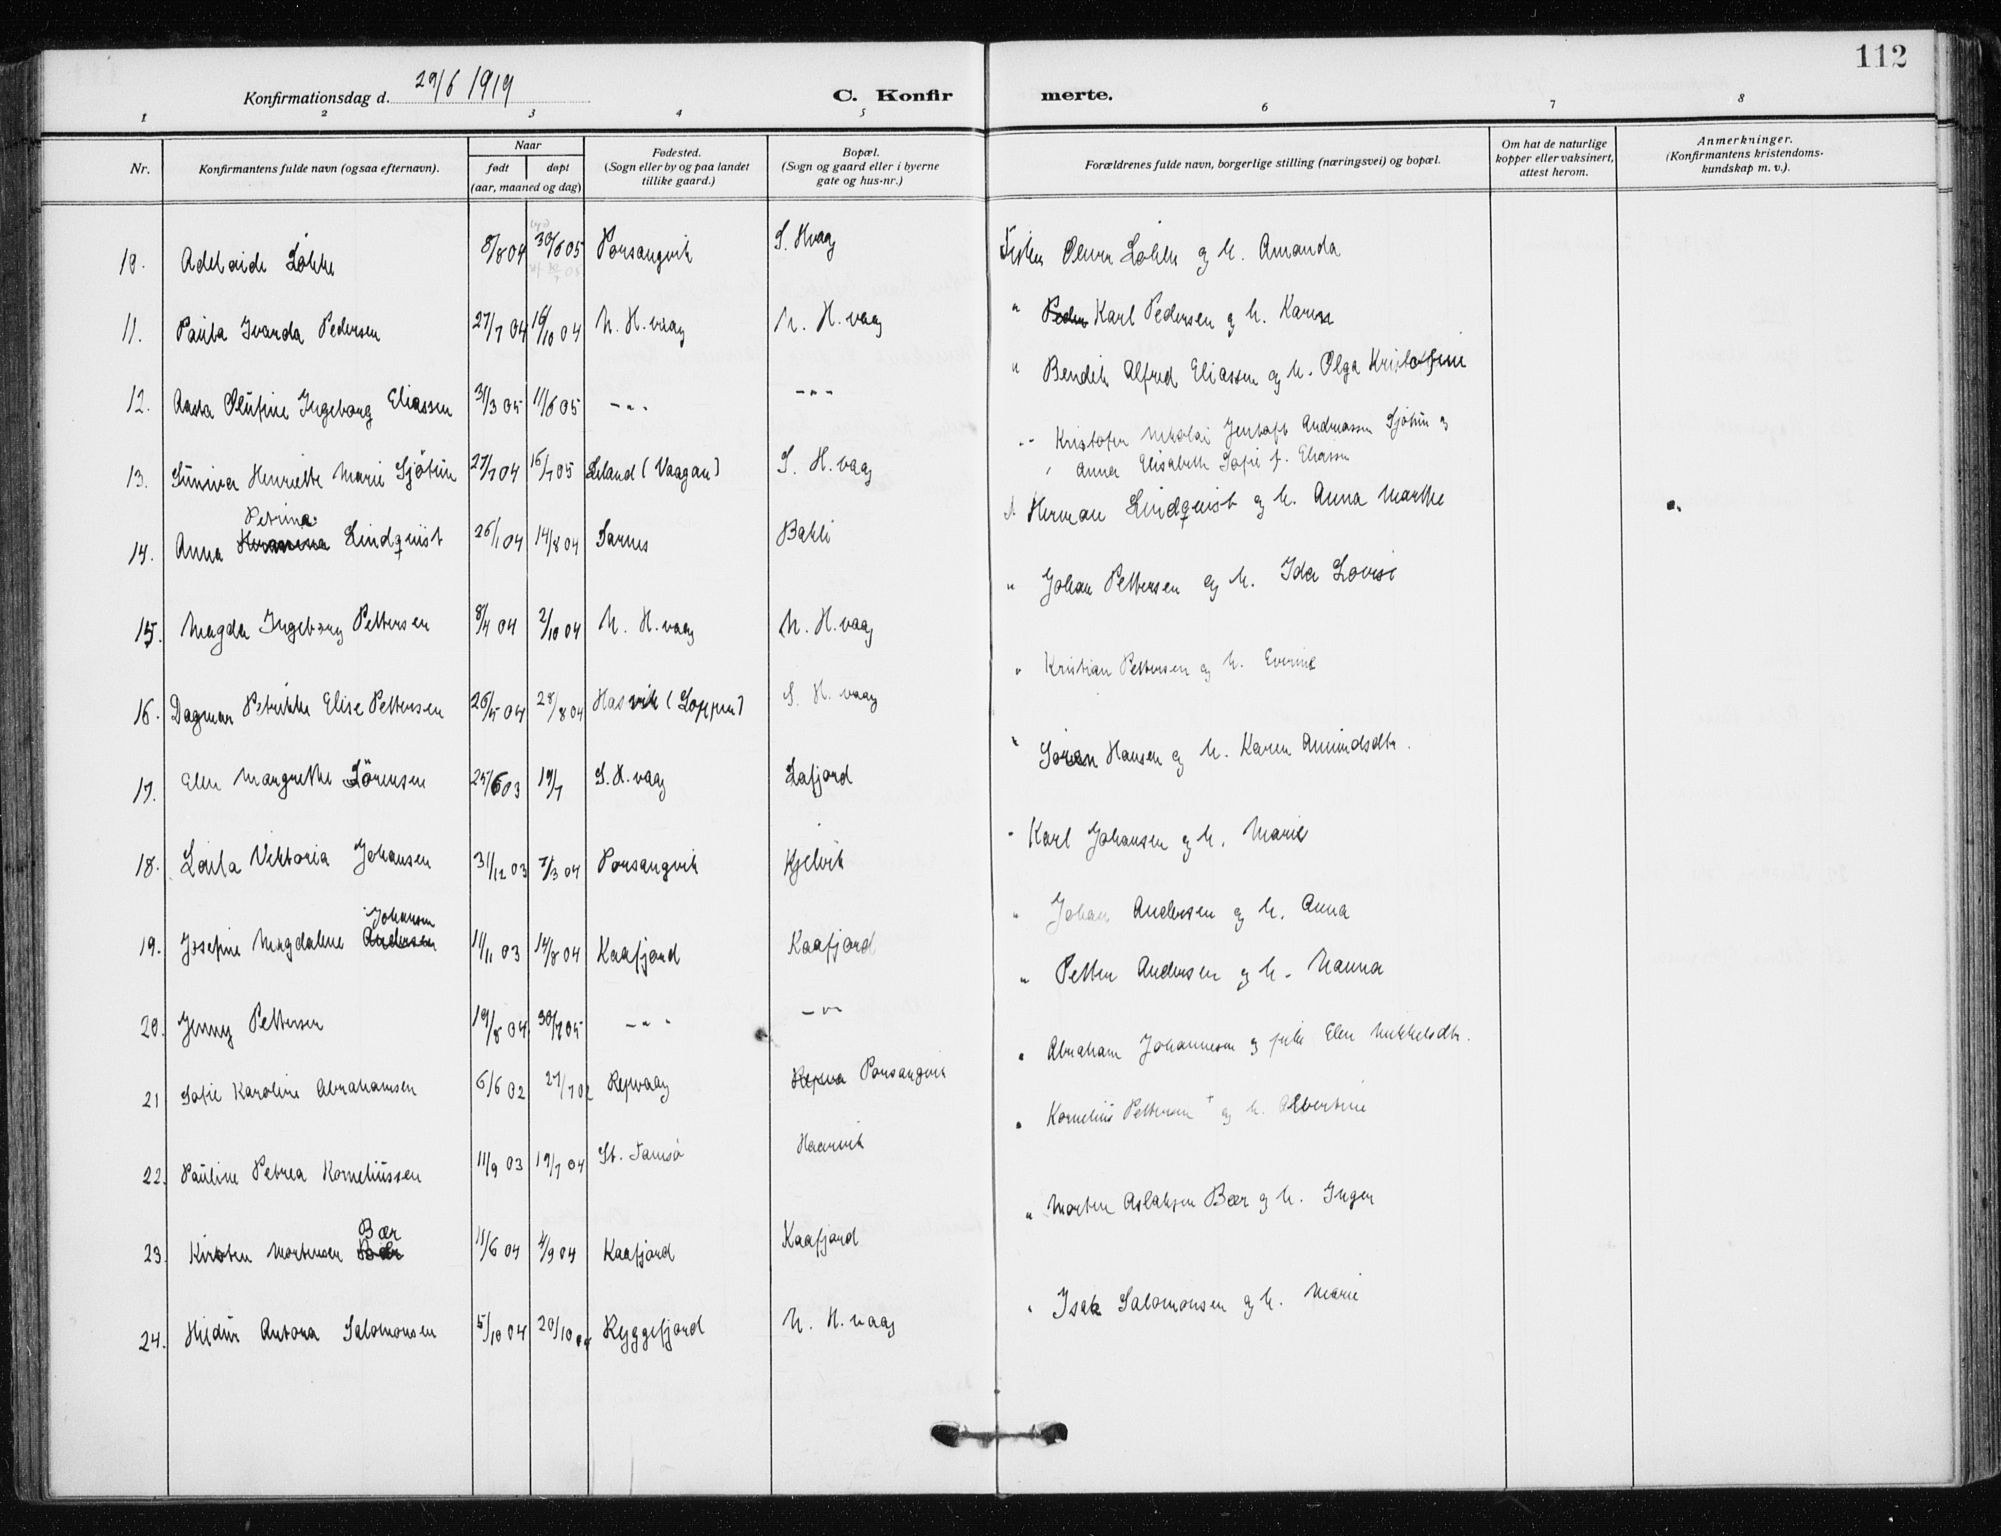 112
Konfirmationsdag d. 29/6 1919
C. Konfirmerte.
1 2 3 4 5 6 7 8
Nr. Konfirmantens fulde navn (ogsaa efternavn). Naar født døpt (aar, maaned og dag) Fødested. (Sogn eller by og paa landet tillike gaard.) Bopæl. (Sogn og gaard eller i byerne gate og hus-nr.) Forældrenes fulde navn, borgerlige stilling (næringsvei) og bopæl. Om hat de naturlige kopper eller vaksinert, attest herom. Anmerkninger. (Konfirmantens kristendoms-kundskap m. v.).
10. Adelaide Løkke 8/8 04 30/6 05 Porsangvik S. Hvaag Fisker Løkke og h. Amanda
11. Paula Ivarda Pedersen 27/7 04 16/10 04 N. H.vaag N. H.vaag " Peder Karl Pedersen og h. Karen
12. Aasta Olufine Ingeborg Eliassen 31/3 05 11/6 05 - " - - " - " Bendik Alfred Eliassen og h. Olga Kristoffine
13. Sünniva Henriette Marie Sjøtün 27/7 04 16/7 05 (Vaagan) S. H.vaag " Kristofer Nikolai Andreassen Sjøtün og
Anna Elisabeth Sofie f. Eliassen
14. Anna Hermine Petrine Lindquist 26/1 04 14/8 04 Sarnes Bakli " Herman Lindquist og h. Anna Marthe
15. Magda Ingeborg Pettersen 8/4 04 2/10 04 N. H.vaag N. H.vaag " Johan Pettersen og h. Ida Lovise
16. Dagmar Petrikke Elise Pettersen 26/5 04 28/8 04 Hasvik (Loppen) S. H.vaag " Kristian Pettersen og h. Everine
17. Elen Margrethe Sörensen 25/6 03 19/7 S. H.vaag Lafjord " Sören Hansen og h. Karen Amundsdtr.
18. Laila Viktoria Johansen 31/12 03 7/3 04 Porsangvik Kjelvik " Karl Johansen og h. Marie
19. Josefine Magdalene Andersen Johansen 11/11 03 14/8 04 Kaafjord Kaafjord " Johan Andersen og h. Anna
20. Jenny Pettersen 19/8 04 30/7 05 - " - - " - " Petter Andersen og h. Nanna
21 Sofie Karoline Abrahamsen 6/6 02 27/7 02 Repvaag Repva Porsangvik " Abraham Johannesen og Elen Mikkelsdtr.
22. Pauline Petrea Korneliüssen 11/9 03 19/7 04 St. Tamsö Haarvik " Kornelius Pettersen + og h. Albertine
23. Kirsten Mortensen Bær Bær 11/6 04 4/9 04 Kaafjord Kaafjord " Morten Aslaksen Bær og h. Inger
24. Hildur Antona Salomonsen 5/10 04 20/10 04 Kyggefjord N. H.vaag " Isak Salomonsen og h. Marie